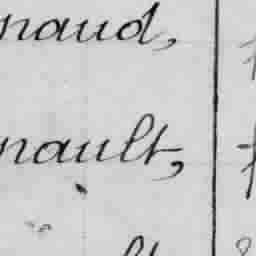 naud,
nault,